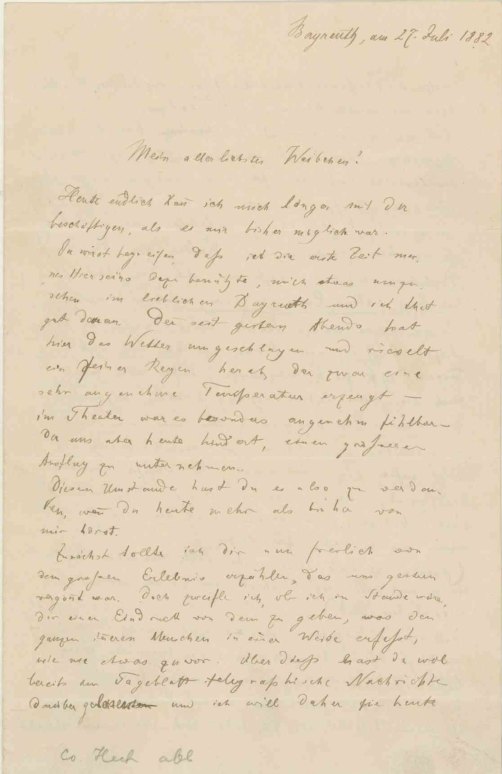 Bayreuth, am 27. Juli 1882
Mein allerliebstes Weibchen!
Heute endlich kan ich mich länger mit dir
beschäftigen, als es mir bisher möglich war.
Du wirst begreifen, daß ich die erste Zeit mei-
nes Hierseins dazu benützte, mich etwas umzu-
sehen im lieblichen Bayreuth und ich that
gut daran. Den seit gestern Abends hat
hier das Wetter umgeschlagen und rieselt
ein feiner Regen herab, der zwar eine
sehr angenehme Temperatur erzeugt –
im Theater war es besonders angenehm fühlbar –
der uns aber heute hindert, einen größeren
Ausflug zu unternehmen.
Diesem Umstande hast du es also zu verdan-
ken, wen du heute mehr als bisher von
mir hörst.
Zunächst sollte ich dir nun freilich von
dem großen Erlebnis erzählen, das uns gestern
vergönt war. Doch zweifle ich, ob ich im Stande wäre,
dir einen Eindruck von dem zu geben, was den
ganzen ineren Menschen in einer Weise erfaßt,
wie nie etwas zuvor. Über dieß hast du wol
bereits im Tageblatt telegraphische Nachrichten
darüber gelesen und ich will daher für heute